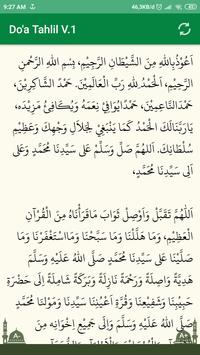 9:27 AM
46,3KB/s
Do'a Tahlil V.1
اَعُوْذُ بِاللهِ مِنَ الشَّيْطَانِ الرَّجِيْمِ، بِسْمِ اللهِ الرَّحْمٰنِ
الرَّحِيْمِ، اَلْحَمْدُ لِلّٰهِ رَبِّ الْعَالَمِيْنَ. حَمْدَ الشَّاكِرِيْنَ،
حَمْدَ النَّاعِمِيْنَ، حَمْدًا يُوَافِيْ نِعَمَهُ وَيُكَافِئُ مَزِيْدَهُ،
يَا رَبَّنَا لَكَ الْحَمْدُ كَمَا يَنْبَغِيْ لِجَلَالِ وَجْهِكَ وَعَظِيْمِ
سُلْطَانِكَ. اَللّٰهُمَّ صَلِّ وَسَلِّمْ عَلَى سَيِّدِنَا مُحَمَّدٍ، وَعَلَى اٰلِ
سَيِّدِنَا مُحَمَّدٍ،
اَللّٰهُمَّ تَقَبَّلْ وَاَوْصِلْ ثَوَابَ مَا قَرَأْنَاهُ مِنَ الْقُرْآنِ
الْعَظِيْمِ، وَمَا هَلَّلْنَا وَمَا سَبَّحْنَا وَمَا اسْتَغْفَرْنَا وَمَا
صَلَّيْنَا عَلَى سَيِّدِنَا مُحَمَّدٍ صَلَّى اللهُ عَلَيْهِ وَسَلَّمَ،
هَدِيَّةً وَاصِلَةً وَرَحْمَةً نَازِلَةً وَبَرَكَةً شَامِلَةً اِلَى حَضْرَةِ
حَبِيْبِنَا وَشَفِيْعِنَا وَقُرَّةِ اَعْيُنِنَا سَيِّدِنَا وَمَوْلَانَا مُحَمَّدٍ
صَلَّى اللهُ عَلَيْهِ وَسَلَّمَ، وَاِلَى جَمِيْعِ اِخْوَانِهِ مِنَ